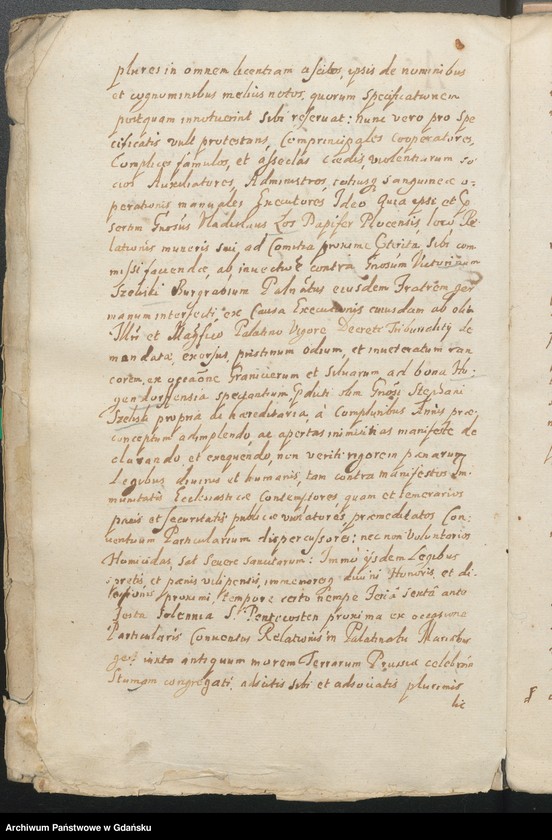 plures in omnem licentiam ascitos, ipsis de nominibus
et cognominibus melius notos, quorum Specificationem
postquam innotuerint Sibi reseruat: nunc vero pro Spe
cificatis vult protestans, Comprincipales Cooperatores,
Complices famulos, et asseclas Caedis, violentiarum so
cios Auxiliatores, Administros, totiusq sanguineae o-
perationis manuales Executores Ideo Quia ipse et
Gnosus Vladislaus Los Dapifer Plocensis, loco Re
lationis muneris sui, ad Comitia proxime Sibi com
missi faciendae, ab inuectiuis contra Gnosum Victorinum
Szeliski Burgrabium eiusdem Fratrem ger
manum interfecti, ex Causa Executionis cuiusdam ab olim
Illri et Magfico Palatino Vigore Decreti Tribunalitij de
mandatae, exorsus, pristinum odium, et inueteratum ran
corem, ex occasione Granicierum et Siluarum ad bona Ho-
gendorffensia spectantium olim Gnosi Stephani
Szeliski propria de haereditaria, à Compluribus Annis prae-
conceptum adimplendo, ac apertas inimicitias manifeste de
clarando, et exequendo, non veriti rigorem paenarum
Legibus diuinis et humanis, tam contra manifestos Im-
munitatis Ecclesiasticae Contemptores, quam et temerarios
pacis et securitatis publicae violatores, praemeditatos Con-
uentuum Particularium dispersores; nec non Voluntarios
Homicidas, sat Seuere sancitarum: Immo ijsdem Legibus
spretis, et paenis vilipensis, immemoresq diuini Honoris, et di-
lectionis proximi, tempore certo nempe Feria Sexta ante
Festa Solennia S. Pentecosten proxima ex occasione
Particularis Conuentus Relationis in Palatinatu Mariaebur
gen iuxta antiquum morem Terrarum Prussiae celebrari
Stumam congregati, adscitis sibi et adsociatis plurimis
hic
Archiwum Państwowe w Gdańsku